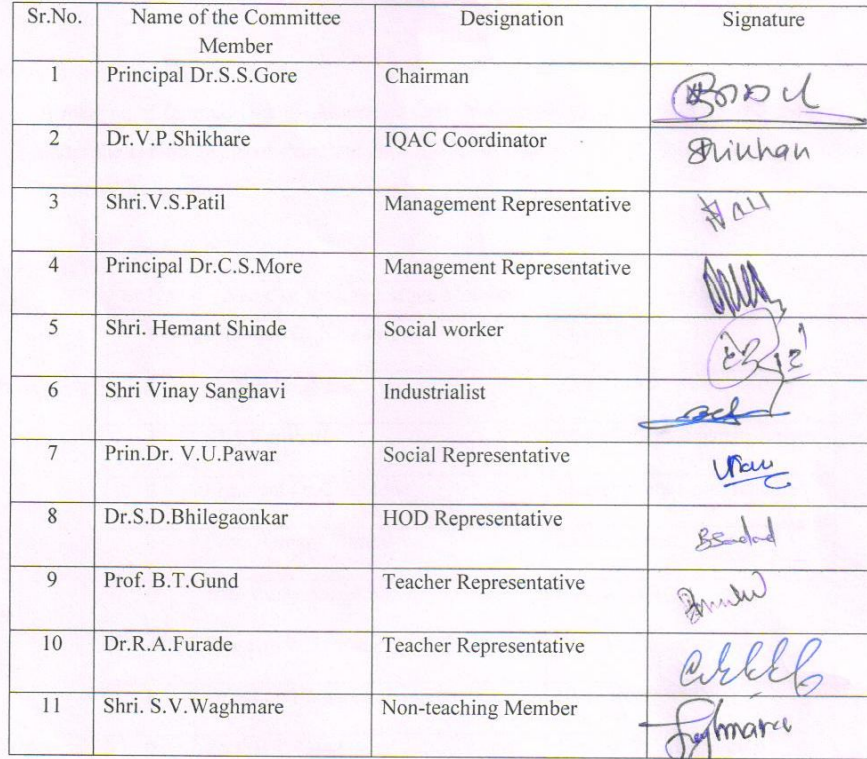 Sr.No. Name of the Committee Designation Signature
Member
1 Principal Dr.S.S.Gore Chairman
2 Dr.V.P.Shikhare IQAC Coordinator
3 Shri.V.S.Patil Management Representative
4 Principal Dr.C.S.More Management Representative
5 Shri. Hemant Shinde Social worker
6 Shri Vinay Sanghavi Industrialist
7 Prin.Dr. V.U.Pawar Social Representative
8 Dr.S.D.Bhilegaonkar HOD Representative
9 Prof. B.T.Gund Teacher Representative
10 Dr.R.A.Furade Teacher Representative
11 Shri. S.V.Waghmare Non-teaching Member